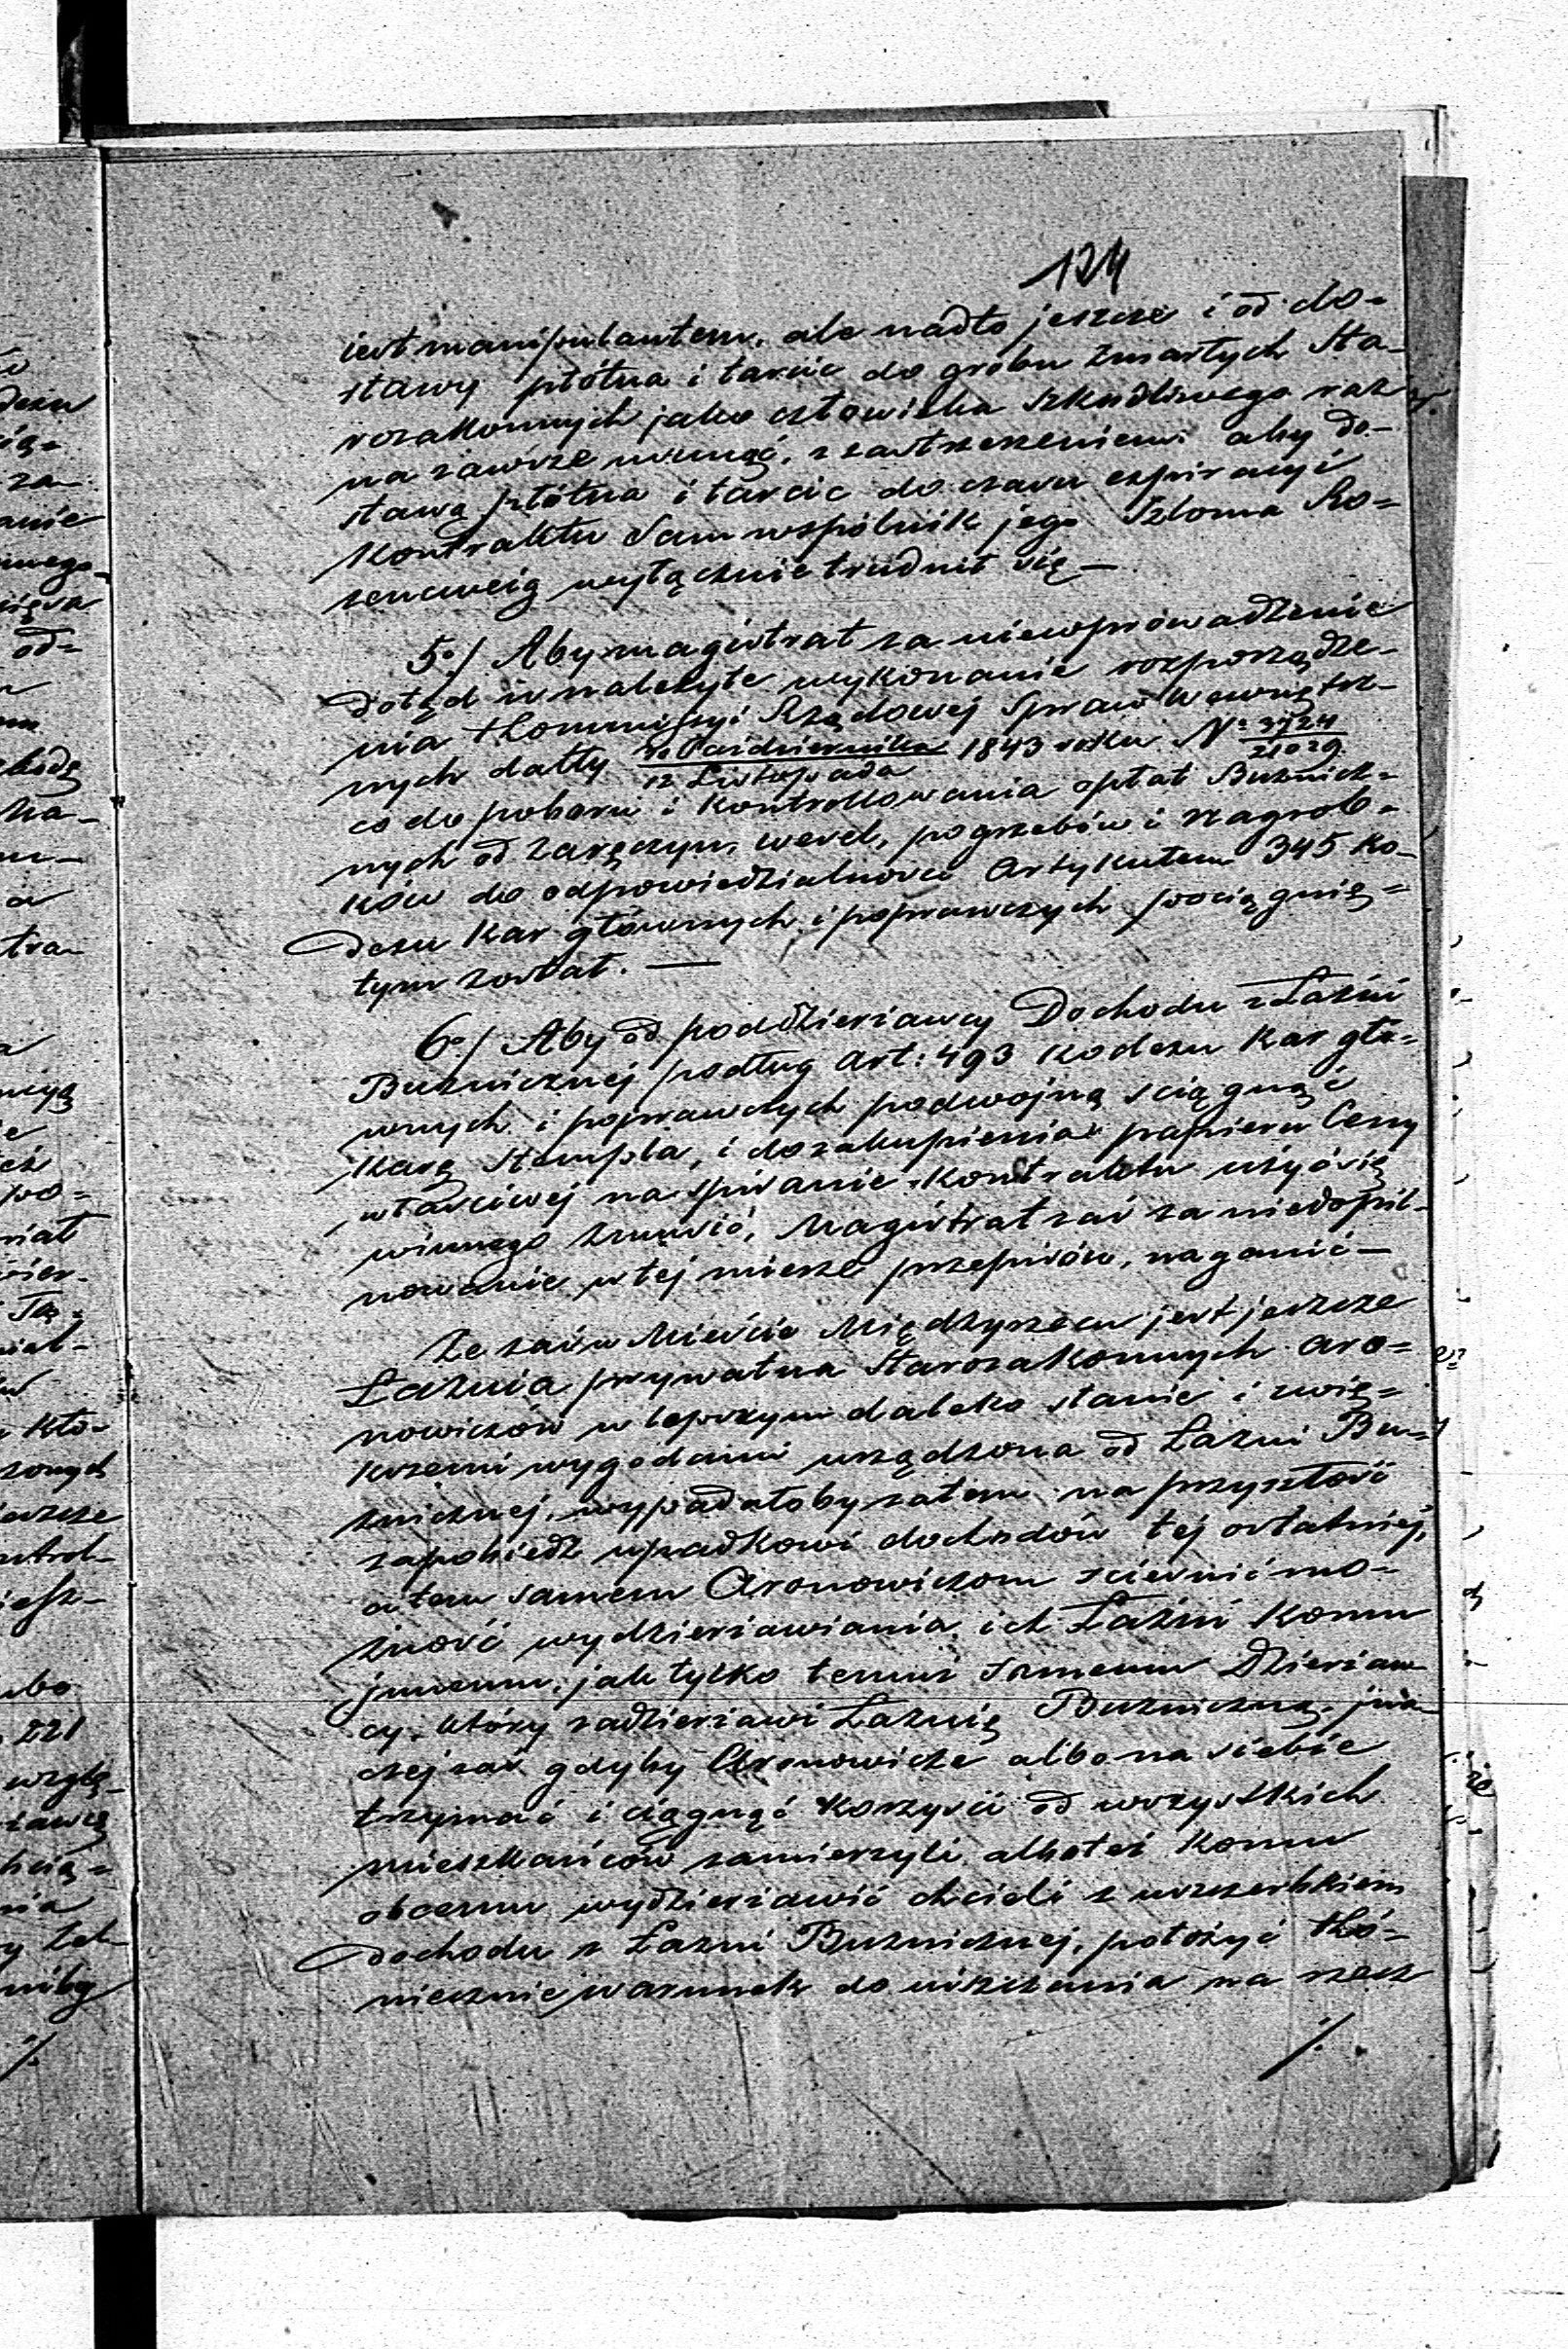 124
iest manipulantem, ale nadto jeszcze i od do=
stawy płótna i tarcic do grobu zmarłych Sta-
rozakonnych jako człowieka szkodliwego raz
na zawsze usunąć, z zastrzeżeniem aby do-
stawą płótna i tarcic do czasu expiracyi
Kontraktu sam wspólnik jego Szloma Ro=
sencweig wyłącznie trudnił się —
5o/ Aby magistrat za niewprowadzenie
dotąd w należyte wykonanie rozporządze-
nia Kommissyi Rządowej Spraw Wewnętrz-
nych datty 31 Października / 12 Listopada 1843 roku No 3724/21029
co do poboru i kontrollowania opłat Bużnicz=
nych od zaręczyn, wesel, pogrzebów i nagrob=
ków do odpowiedzialności Artykułem 345 Ko-
dexu Kar głównych i poprawczych pociągnię=
tym został. —
6o/ Aby od poddzierżawcy Dochodu z Łaźni
Bużnicznej podług Art: 493 Kodexu Kar głó=
wnych i poprawczych podwójną ściągnąć
Karę Stempla, i do zakupienia papieru Ceny
właściwej na spisanie Kontraktu użyć się
winnego zmusić, Magistrat zaś za niedopil-
nowanie w tej mierze przepisów, naganić —
Że zaś w Mieście Międzyrzecu jest jeszcze
Łaźnia prywatna Starozakonnych Aro=
nowiczów w lepszym daleko stanie i zwię=
kszemi wygodami urządzona od Łaźni Bu=
żnicznej, wypadałoby zatem na przyszłość
zapobiedz upadkowi dochodów tej ostatniej,
a tem samem Aronowiczom ścieśnić mo=
żność wydzierżawiania ich Łaźni komu
innemu, jak tylko temuż samemu Dzierżaw
cy, który zadzierżawi Łaźnię Bużniczną, ina
czej zaś gdyby Aronowicze albo na siebie
trzymać i ciągnąć korzyści od wszystkich
mieszkańców zamierzyli, albo też komu
obcemu wydzierżawić chcieli z uszczerbkiem
dochodu z Łaźni Bużnicznej, położyć Kó=
niecznie warunek do uiszczania na rzecz
./.